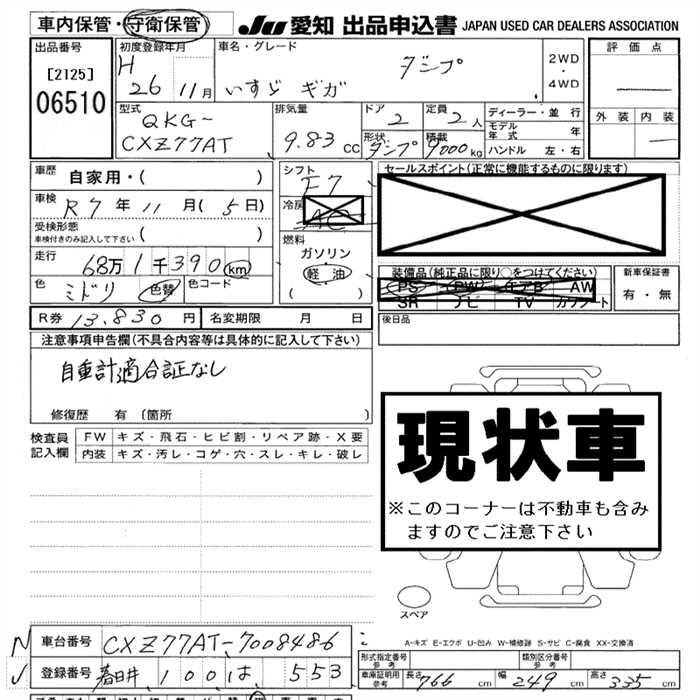 車内保管・守衛保管 JU 愛知 出品申込書 JAPAN USED CAR DEALERS ASSOCIATION
出品番号 初度登録年月 車名・グレード 評価点
[2125] H 26 11月 いすゞ ギガ ダンプ 2WD・4WD
06510
型式 排気量 ドア 定員 ディーラー・並行 外装 内装
QKG- 2 2人 モデル年式 年
CXZ77AT 9.83 cc 形状 ダンプ 積載 9000kg ハンドル 左・右
車歴 自家用・( ) シフト F7 セールスポイント(正常に機能するものに限ります)
車検 R7年 11月(5日) 冷房 AC
受検形態 ( )
車検付きのみ記入して下さい
燃料
走行 68万1千390km ガソリン
軽油
( )
装備品(純正品に限り○をつけてください) 新車保証書
色 ミドリ 色替 色コード PS PW エアB AW 有・無
SR ナビ TV カワシート
R券 13,830円 名変期限 月 日 後日品
注意事項申告欄(不具合内容等は具体的に記入して下さい)
自重計適合証なし
修復歴 有 (箇所 )
現状車
※このコーナーは不動車も含み
ますのでご注意下さい
検査員記入欄 FW キズ・飛石・ヒビ割・リペア跡・X要
内装 キズ・汚レ・コゲ・穴・スレ・キレ・破レ
スペア
A-キズ E-エクボ U-凹み W-補修跡 S-サビ C-腐食 XX-交換済
N 車台番号 CXZ77AT-7008486
レ 登録番号 春日井 100 は 553
形式指定番号参考 類別区分番号参考
車庫証明用参考 長さ 766 cm 幅 249 cm 高さ 335 cm